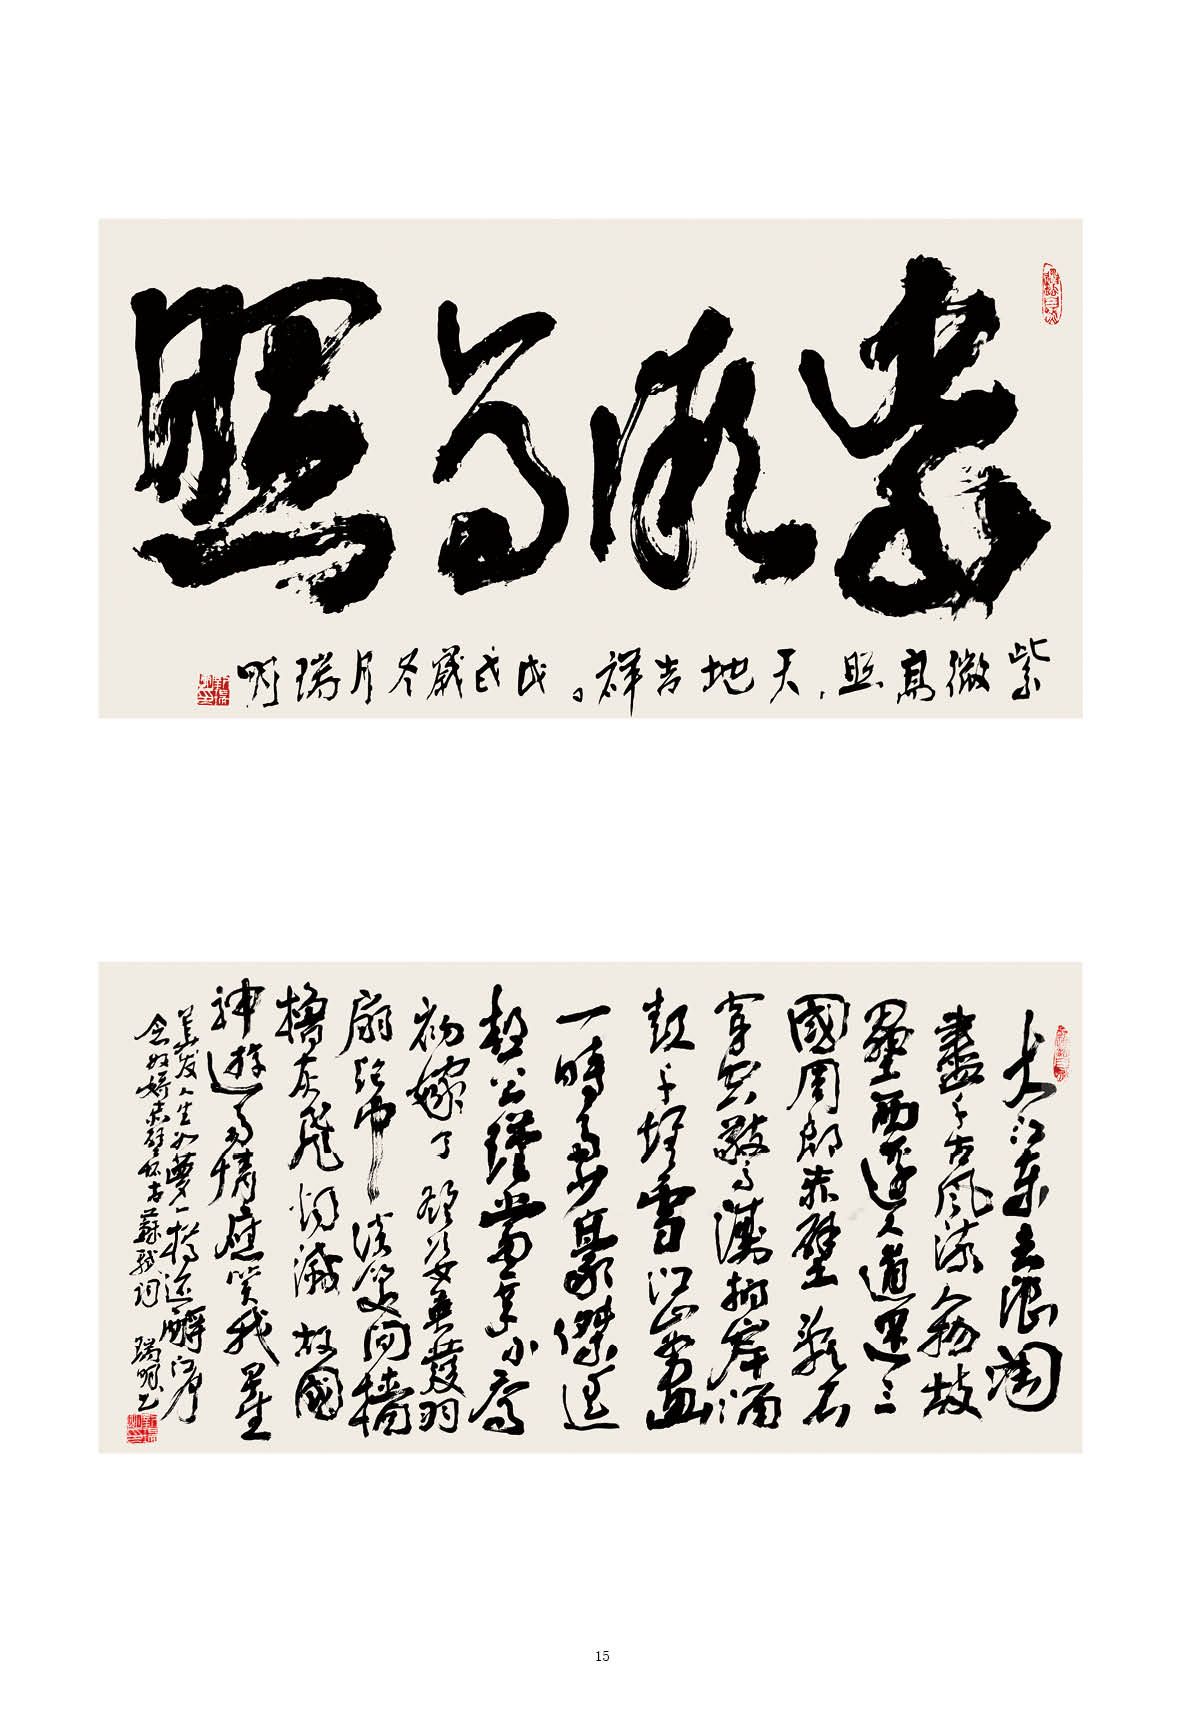 紫微高照
紫微高照，天地吉祥。戊戌歲冬月瑞明
大江東去浪淘
盡千古風流人物故
壘西邊人道是三
國周郎赤壁亂石
穿空驚濤拍岸涌
起千堆雪江山如畫
一時多少豪傑遥
想公瑾當年小喬
初嫁了雄姿英發羽
扇綸巾談笑間檣
櫓灰飛烟滅故國
神遊多情應笑我早生
華发人生如夢一樽還酹江月
念奴嬌赤壁懷古蘇軾詞 瑞明书
15